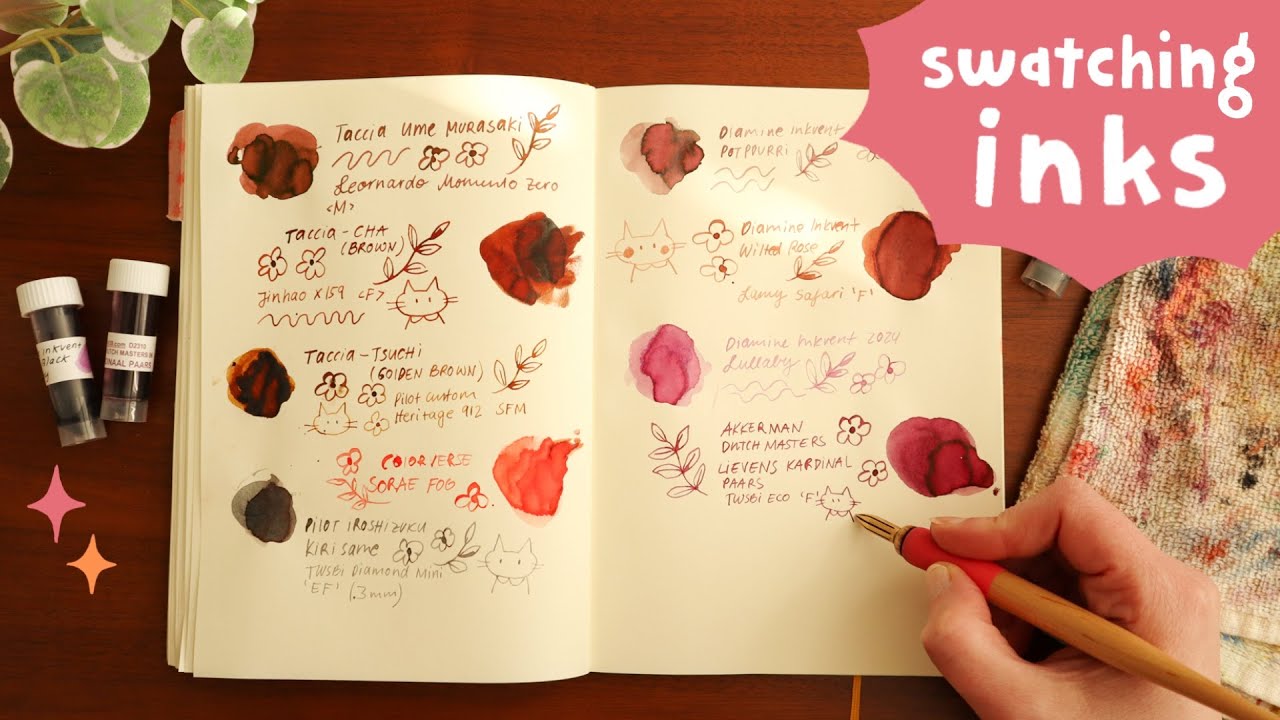 swatching
inks
Taccia Ume Murasaki
Leornardo Momento Zero
<M>
Taccia - CHA
(BROWN)
Jinhao X159 <F>
Taccia - Tsuchi
(GOLDEN BROWN)
Pilot Custom
Heritage 912 SFM
COLORVERSE
SORAE FOG
PILOT IROSHIZUKU
KIRISAME
TWSBI Diamond Mini
'EF' (.3mm)
Diamine Inkvent
POTPOURRI
Diamine Inkvent
Wilted Rose
Lamy Safari 'F'
Diamine Inkvent 2024
Lullaby
AKKERMAN
DUTCH MASTERS
LIEVENS KARDINAL
PAARS
TWSBI ECO 'F'
Inkvent
Black
.com D2310
DUTCH MASTERS
NAAL PAARS